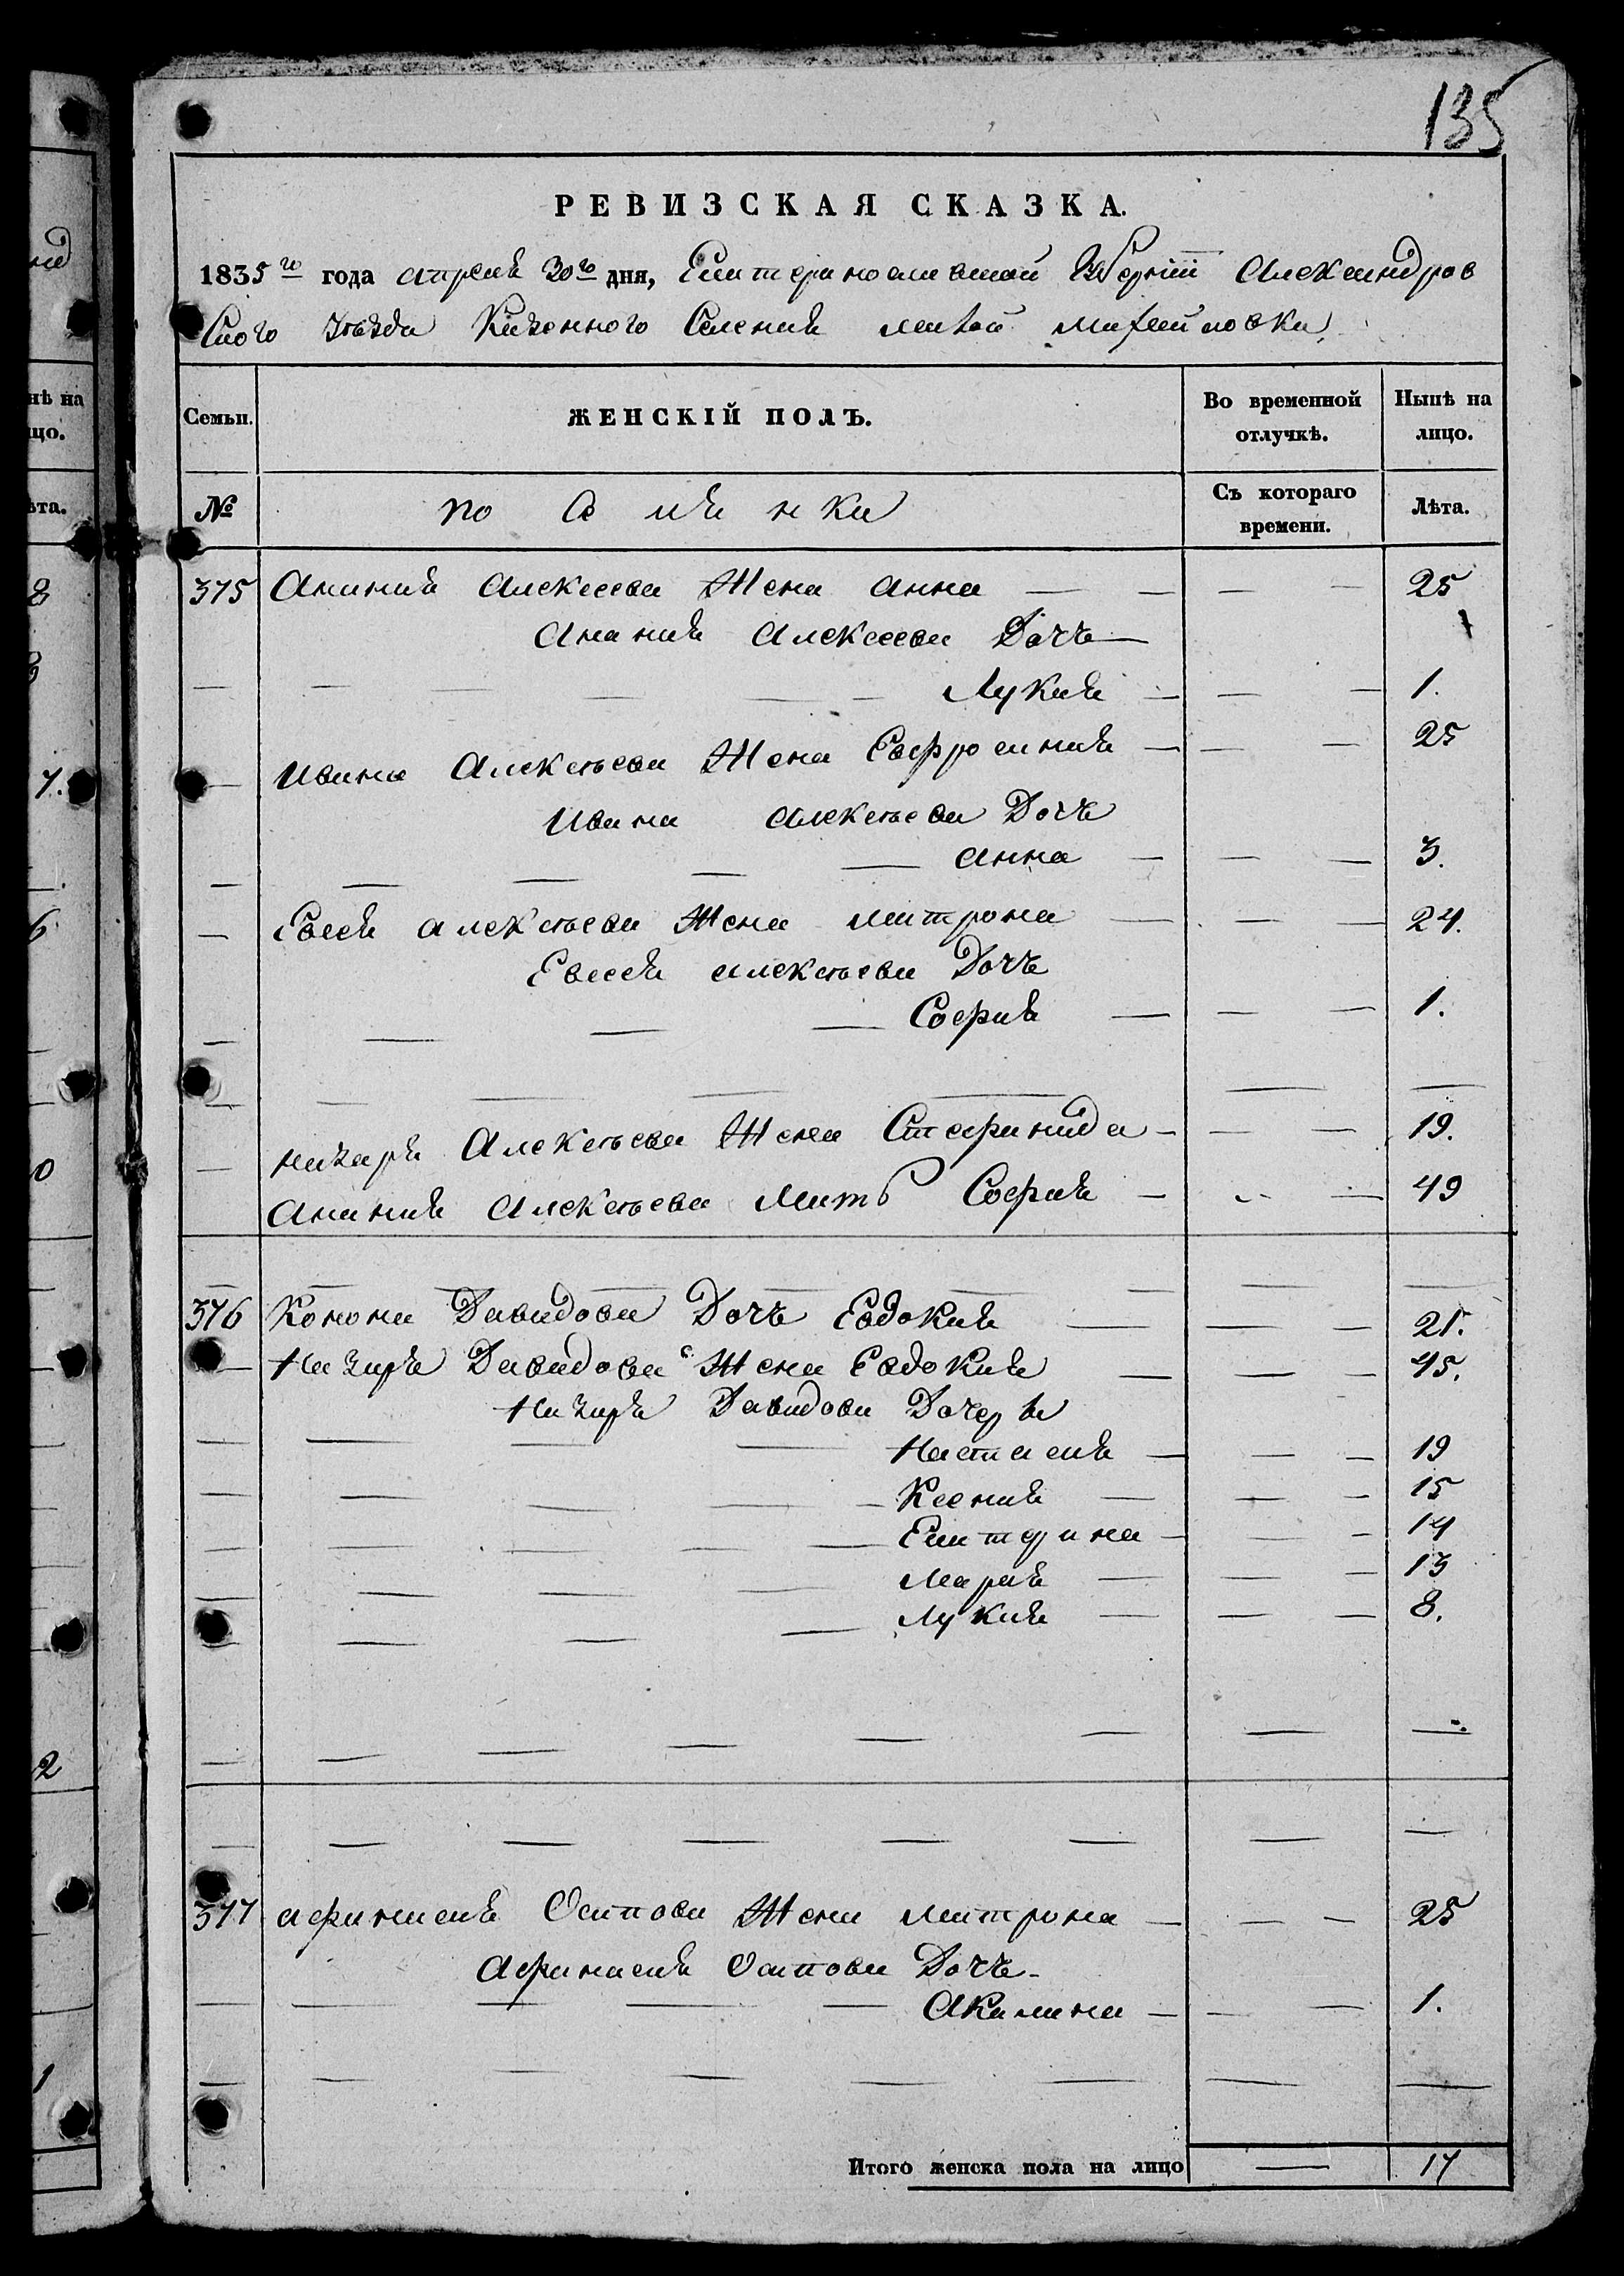 135
РЕВИЗСКАЯ СКАЗКА.
1835 го года апреля 30 го дня, Екатеринославской Губерніи Александров
скаго уѣзда Казенного Селения малой михайловки
Семьи. ЖЕНСКІЙ ПОЛЪ. Во временной отлучкѣ. Нынѣ на лицо.
№ поселянки Съ котораго времени. Лѣта.
375 Анания Алексеева Жена Анна — — — — 25
Анания Алексеева Дочь —
— — — — — — Лукия — — — 1.
Ивана Алексѣева Жена Ефросиния — — — 25
Ивана Алексѣева Дочь
— — — — — Анна — — — 3.
— Евсея Алексѣева Жена Матрона — — — 24.
Евсея Алексѣева Дочь
— — — — София — — — 1.
— — — — — — —
— Назаря Алексѣева Жена Стефанида — — — 19.
Анания Алексѣева Мать София — — — 49
— — — — — — — —
376 Конона Давидова Дочь Евдокия — — — 21.
— Назаря Давидова Жена Евдокия — — — 45.
Назаря Давидова Дочеря
— — — — Настасия — — — 19
— — — — — Ксения — — — 15
— — — — — Екатерина — — — 14
— — — — Мария — — — 13
— — — — Лукия — — — 8.
— — — — — — — —
— — — — — — — —
377 Афанасия Осипова Жена Матрона — — — 25
Афанасия Осипова Дочь —
— — — — — Акилина — — — 1.
— — — — — — — —
Итого женска пола на лицо — 17
нѣ на
цо.
ѣта.
8
7.
6
0
2
1